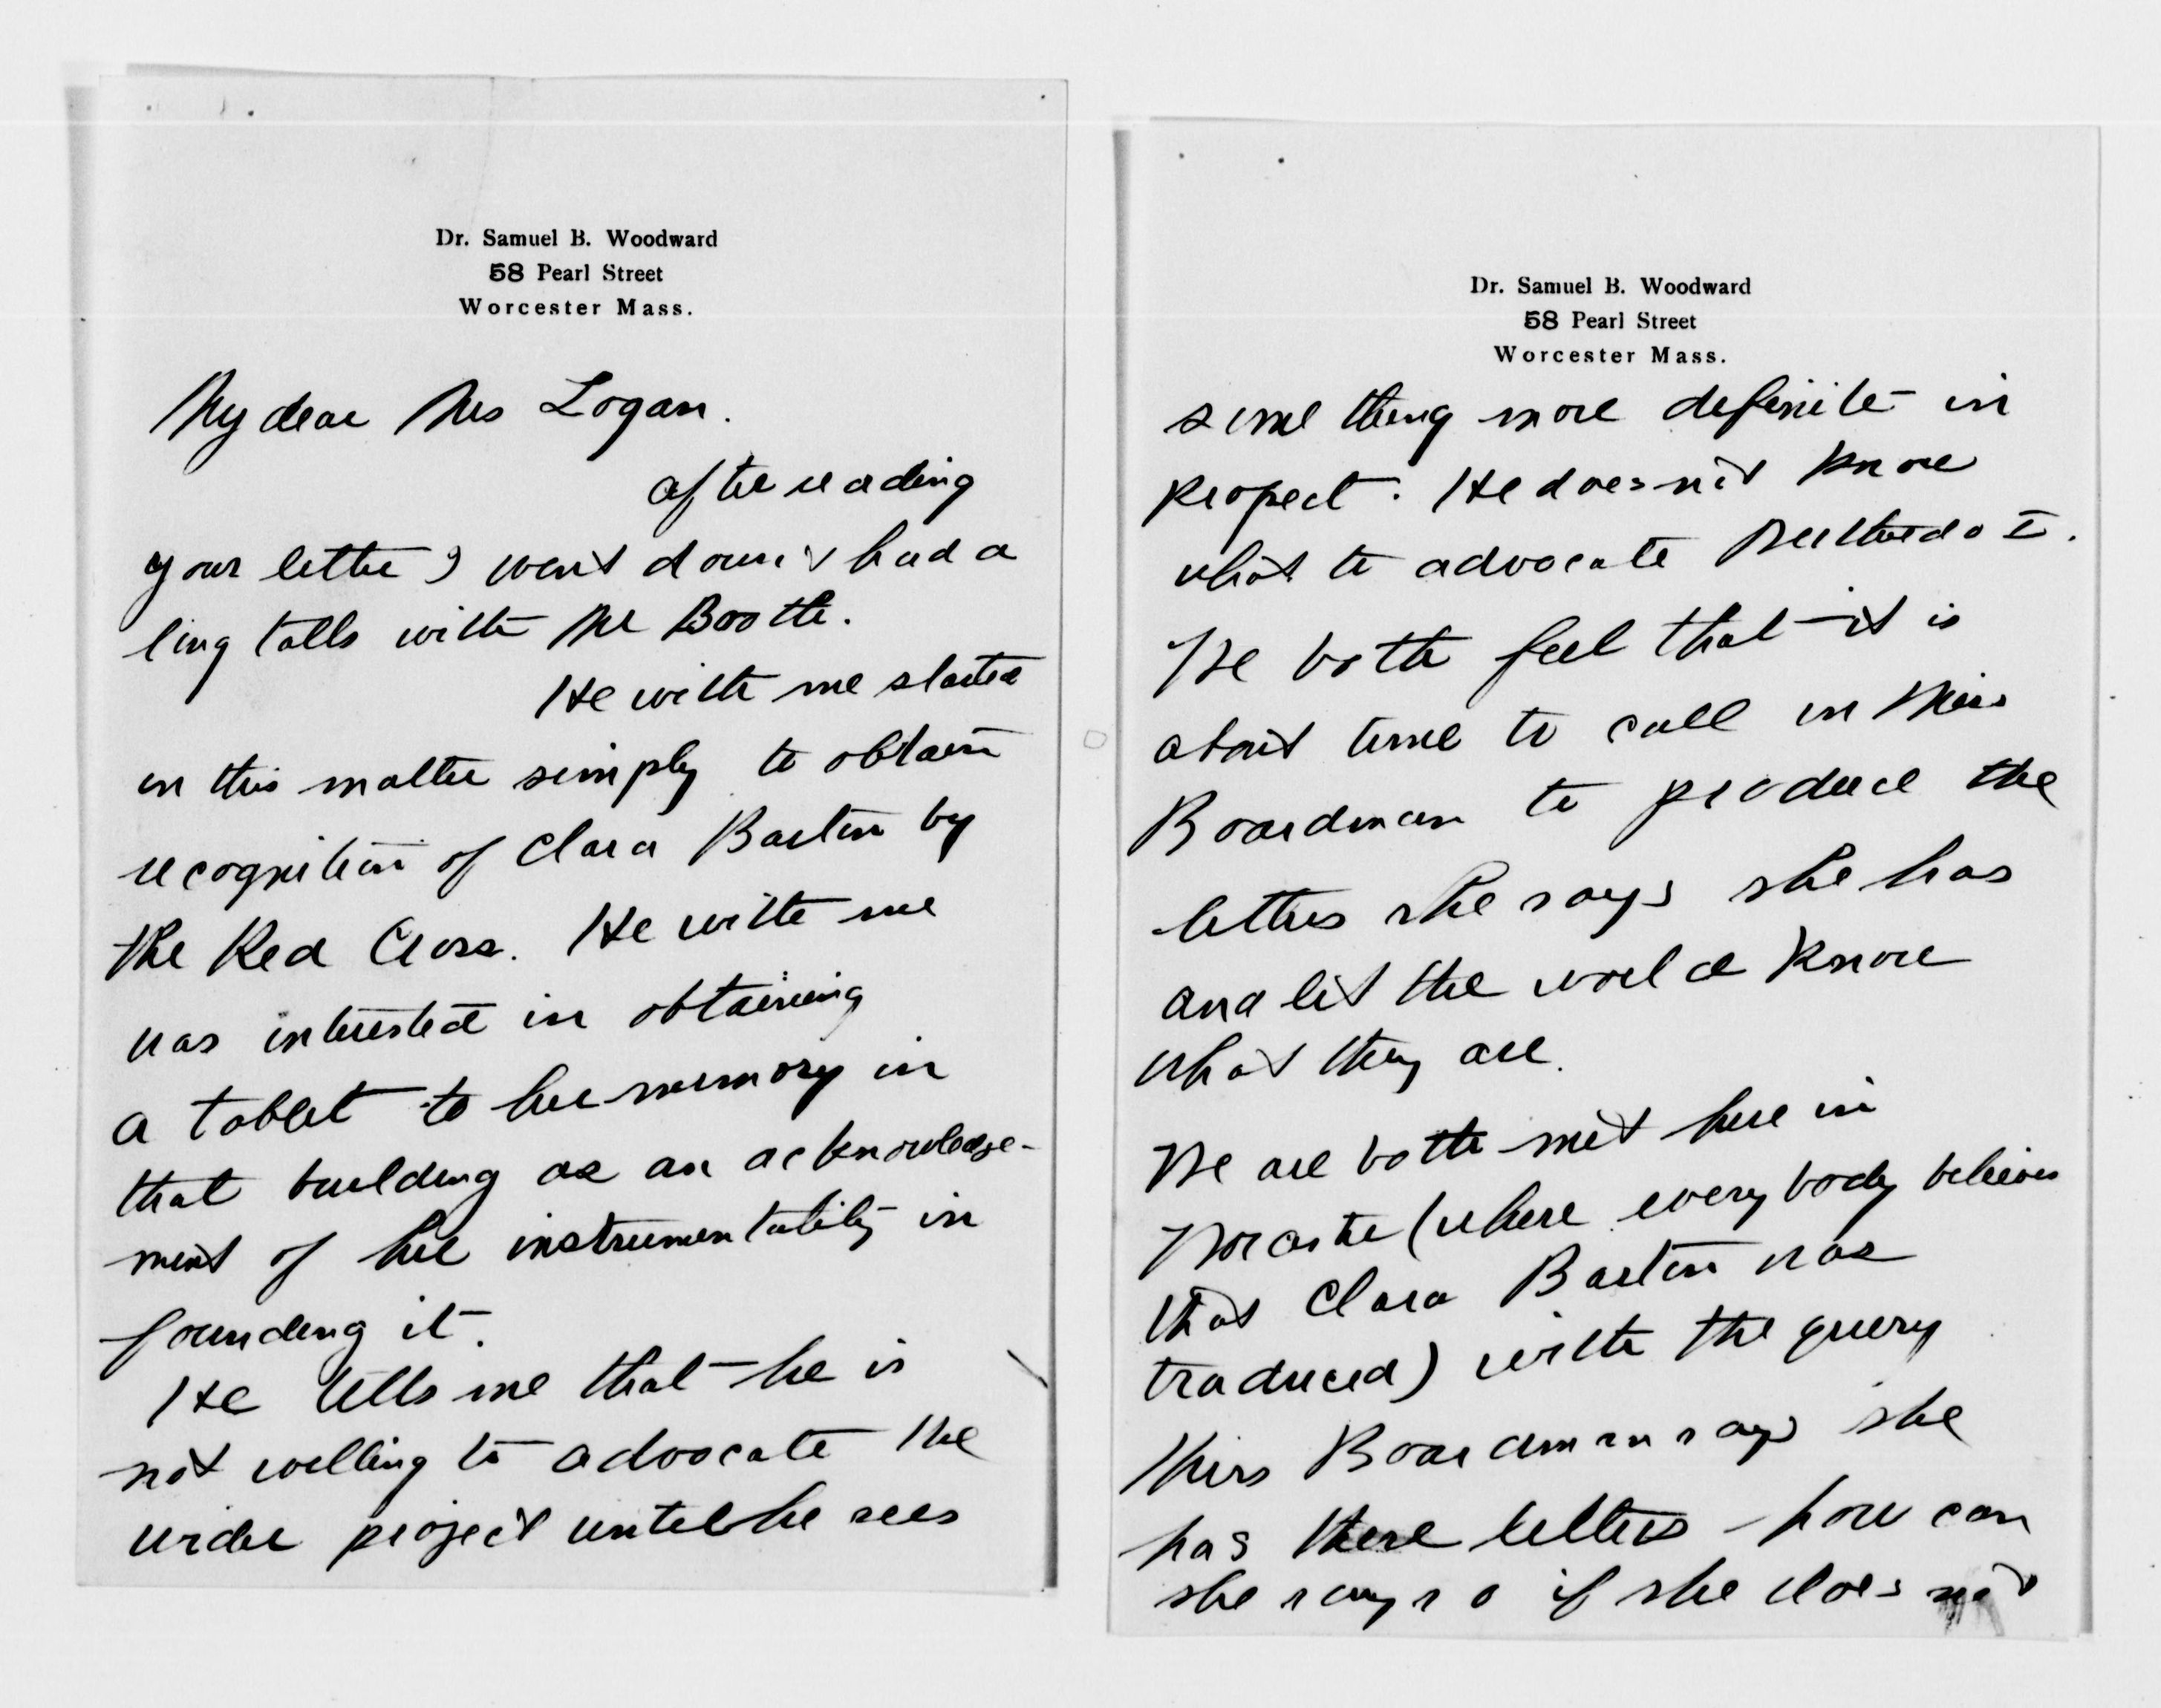 Dr. Samuel B. Woodward
58 Pearl Street
Worcester Mass.
My dear Mrs Logan.
After reading
your letter I went down & had a
long talk with Mr Booth.
He with me started
in this matter simply to obtain
recognition of Clara Barton by
the Red Cross. He with me
was interested in obtaining
a tablet to her memory in
that building as an acknowledge-
ment of her instrumentality in
founding it.
He tells me that he is
not willing to advocate the
wider project until he sees
Dr. Samuel B. Woodward
58 Pearl Street
Worcester Mass.
some thing more definite in
prospect. He does not know
what to advocate Neither do I.
We both feel that it is
about time to call in Miss
Boardman to produce the
letters she says she has
and let the world know
what they are.
We are both met here in
Worcester (where every body believes
that Clara Barton was
traduced) with the query
Miss Boardman says she
has these letters - how can
she say so if she does not